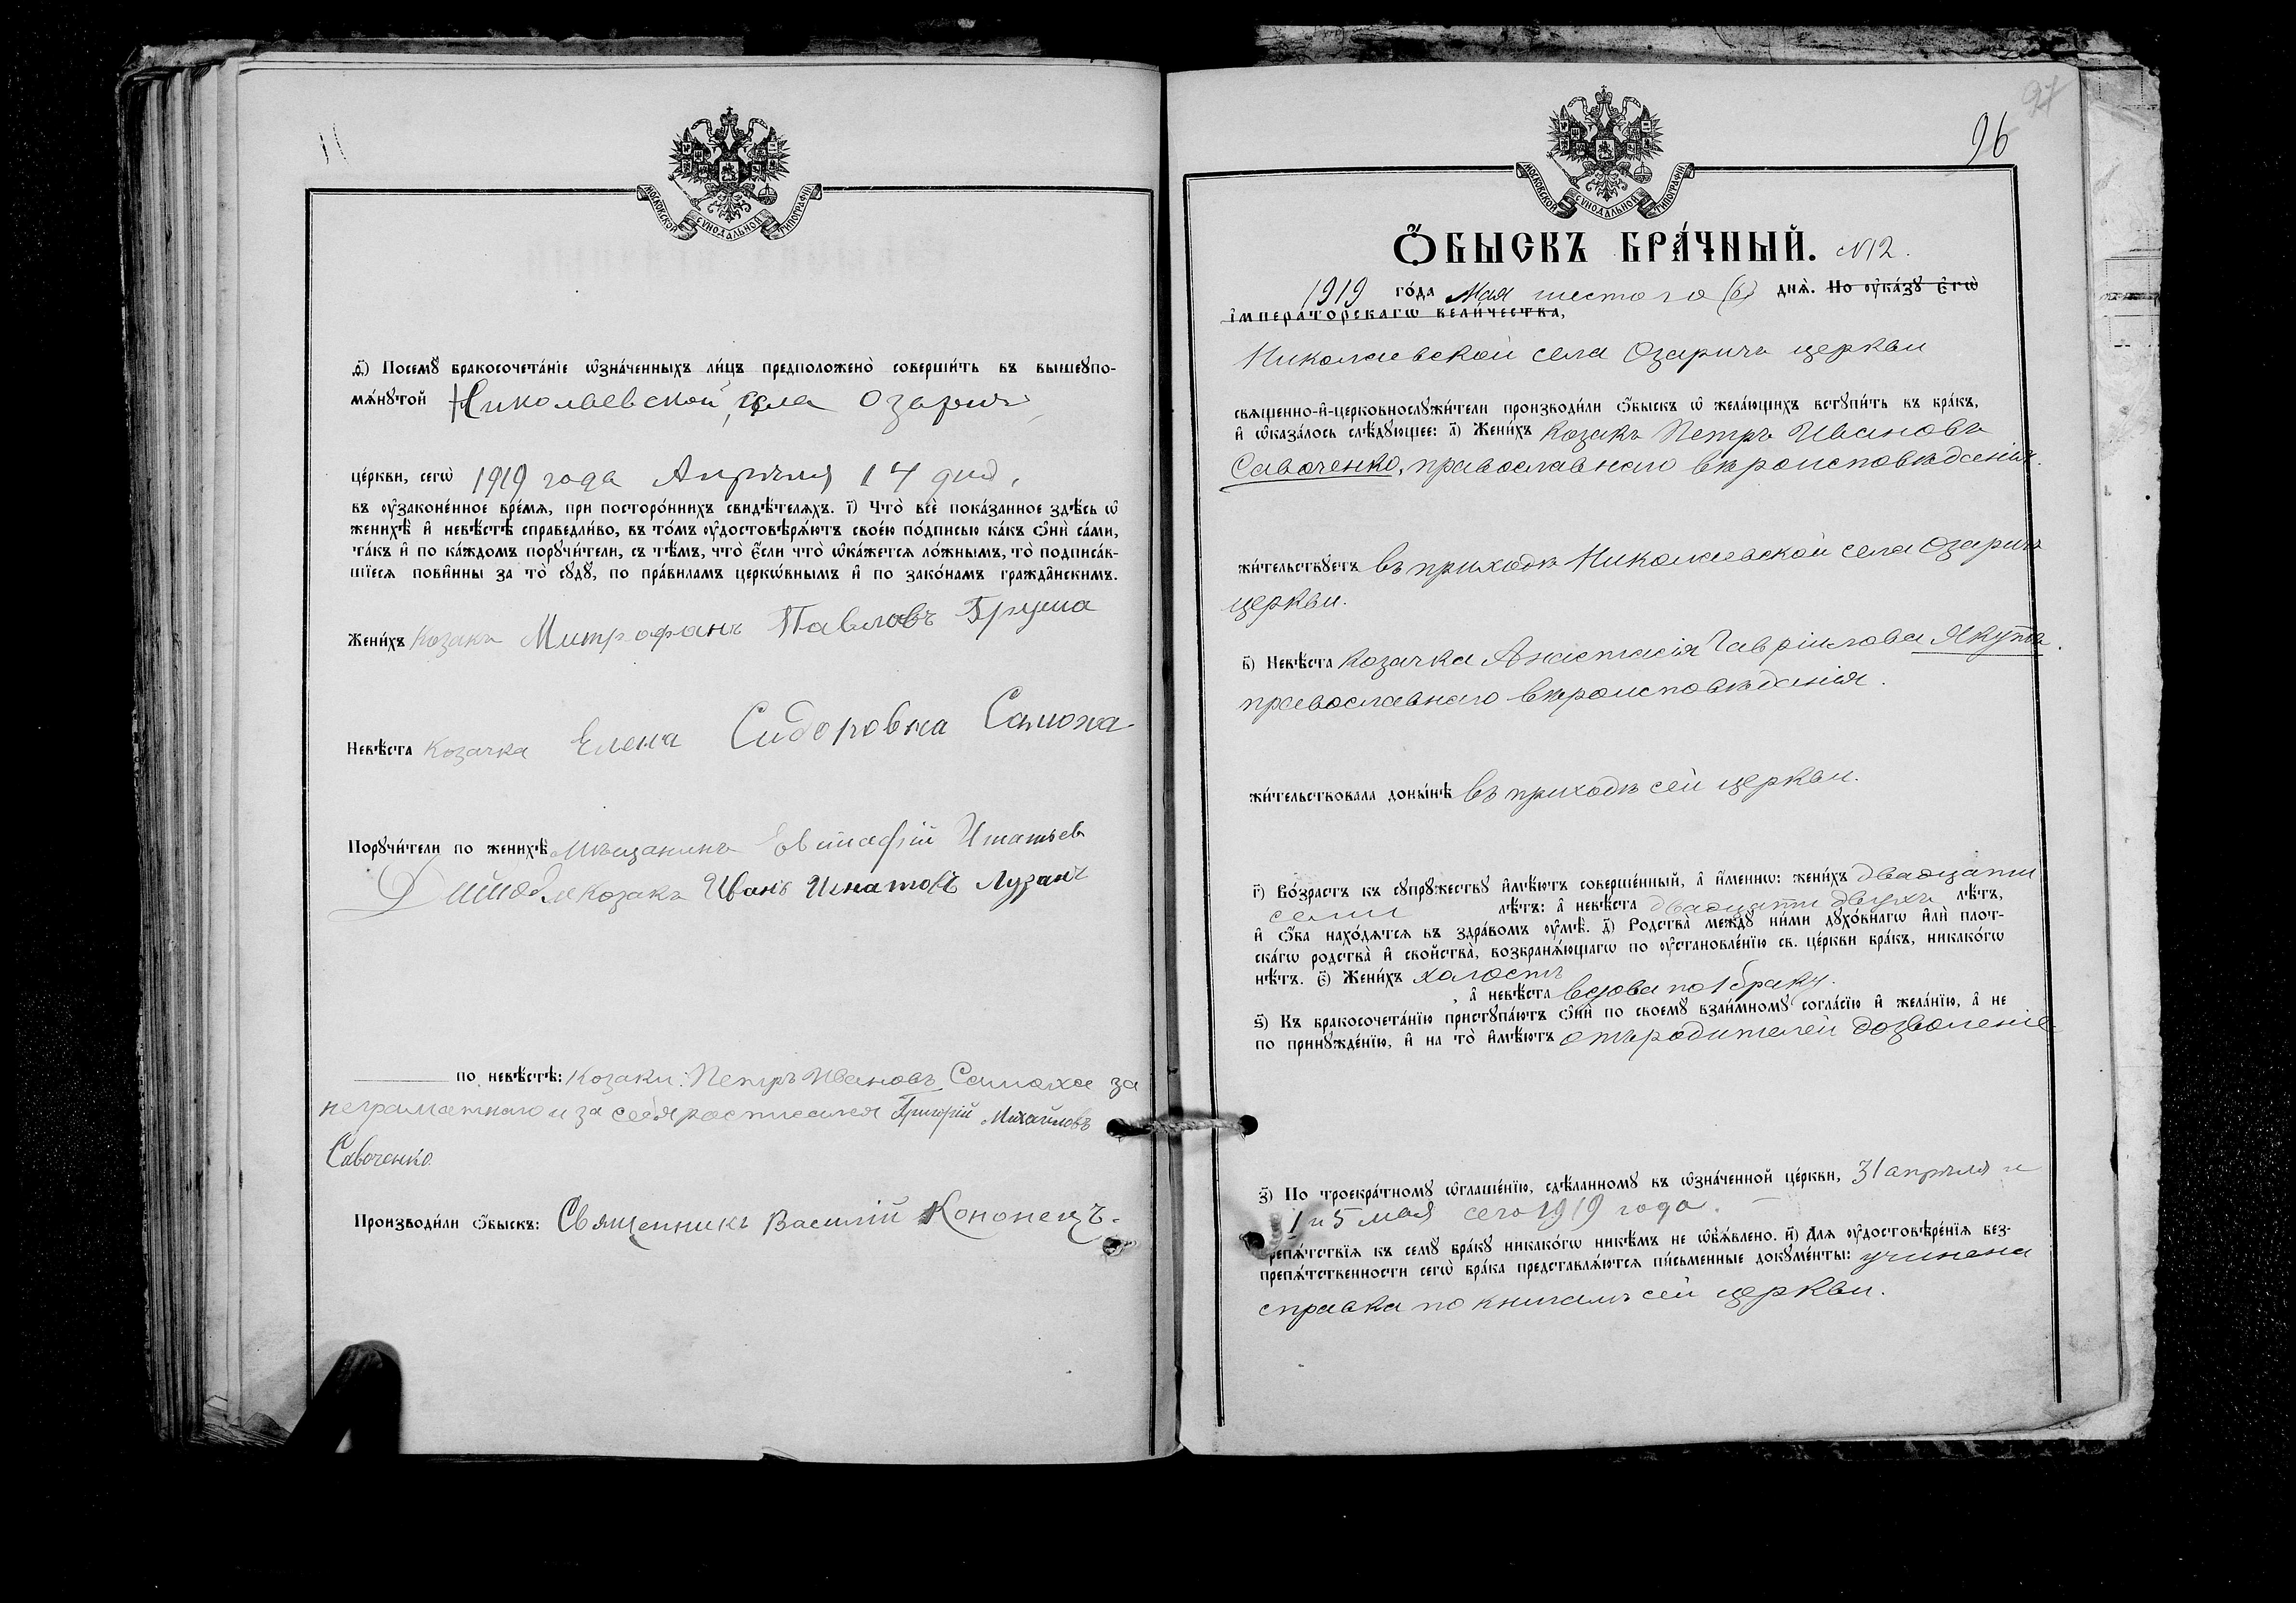 МОСКОВСКОЙ СѴНОДАЛЬНОЙ ТИПОГРАФІИ
ѳ҃) Посемꙋ̀ бракосочета́нїе ѡ҆зна́ченныхъ ли́цъ предположено̀ соверши́ть въ вышеꙋпо-
мѧ́нꙋтой Николаевской, села Озаричъ
це́ркви, сегѡ̀ 1919 года Апрѣля 14 дня,
въ ᲂу҆зако́ненное вре́мѧ, при посторо́ннихъ свидѣ́телѧхъ. і҃) Что̀ всѐ пока́занное здѣ́сь ѡ҆
женихѣ̀ и҆ невѣ́стѣ справедли́во, въ то́мъ ᲂу҆достовѣрѧ́ютъ свое́ю по́дписью ка́къ ѻ҆нѝ са́ми,
та́къ и҆ по ка́ждомъ порꙋчи́тели, съ тѣ́мъ, что̀ є҆́сли что̀ ѡ҆ка́жетсѧ ло́жнымъ, то̀ подписа́в-
шїесѧ пови́нны за то̀ сꙋдꙋ̀, по пра́виламъ церко́внымъ и҆ по зако́намъ гражда́нскимъ.
Жени́хъ Козакъ Митрофанъ Павловъ Груша
Невѣ́ста Козачка Елена Сидоровна Самоха
Порꙋчи́тели по женихѣ̀ Мѣщанинъ Евстафій Игнатьев
козакъ Иванъ Игнатовъ Лузанъ
по невѣ́стѣ: Козаки: Петръ Ивановъ Самоха за
неграмотнаго и за себя росписался Григорій Михайловъ
Савоченко.
Производи́ли ѻ҆́быскъ: Священникъ Василій Кононецъ.
96
97
МОСКОВСКОЙ СѴНОДАЛЬНОЙ ТИПОГРАФІИ
Ѻ҆́БЫСКЪ БРА́ЧНЫЙ. №12.
1919 го́да Мая шестого (6) днѧ̀. По ᲂу҆ка́зꙋ Є҆гѡ̀
і҆мпера́торскагѡ вели́чества,
Николаевской села Озаричъ церкви
свѧще́нно-и҆-церковнослꙋжи́тели производи́ли ѻ҆́быскъ ѡ҆ жела́ющихъ вступи́ть въ бра́къ,
и҆ ѡ҆каза́лось слѣ́дꙋющее: а҃) Жени́хъ Козакъ Петръ Ивановъ
Савоченко, православнаго вѣроисповѣданія.
жи́тельствꙋетъ въ приходѣ Николаевской села Озаричъ
церкви.
в҃) Невѣ́ста Козачка Анастасія Гавріилова Якута.
православнаго вѣроисповѣданія.
жи́тельствовала доны́нѣ въ приходѣ сей церкви.
г҃) Во́зрастъ къ сꙋпрꙋ́жествꙋ и҆мѣ́ютъ соверше́нный, а҆ и҆́меннѡ: жени́хъ двадцати
семи лѣ́тъ: а҆ невѣ́ста двадцати двухъ лѣ́тъ,
и҆ ѻ҆́ба нахо́дѧтсѧ въ здра́вомъ ᲂу҆мѣ̀. д҃) Родства̀ междꙋ̀ ни́ми дꙋхо́внагѡ и҆лѝ плот-
ска́гѡ родства̀ и҆ свойства̀, возбранѧ́ющагѡ по ᲂу҆становле́нїю св. це́ркви бра́къ, никако́гѡ
нѣ́тъ. є҃) Жени́хъ холостъ
, а҆ невѣ́ста вдова по 1 браку.
ѕ҃) Къ бракосочета́нїю пристꙋпа́ютъ ѻ҆нѝ по своемꙋ̀ взаи́мномꙋ согла́сїю и҆ жела́нїю, а҆ не
по принꙋжде́нїю, и҆ на то̀ и҆мѣ́ютъ отъ родителей дозволеніе
з҃) По троекра́тномꙋ ѡ҆глаше́нїю, сдѣ́ланномꙋ въ ѡ҆зна́ченной це́ркви, 31 апрѣля и
1 и 5 мая сего 1919 года.
препѧ́тствїѧ къ семꙋ̀ бра́кꙋ никако́гѡ никѣ́мъ не ѡ҆б̾ѧ́влено. и҃) Длѧ ᲂу҆достовѣре́нїѧ без-
препѧ́тственности сегѡ̀ бра́ка представлѧ́ютсѧ пи́сьменные докꙋме́нты: учинена
справка по книгамъ сей церкви.